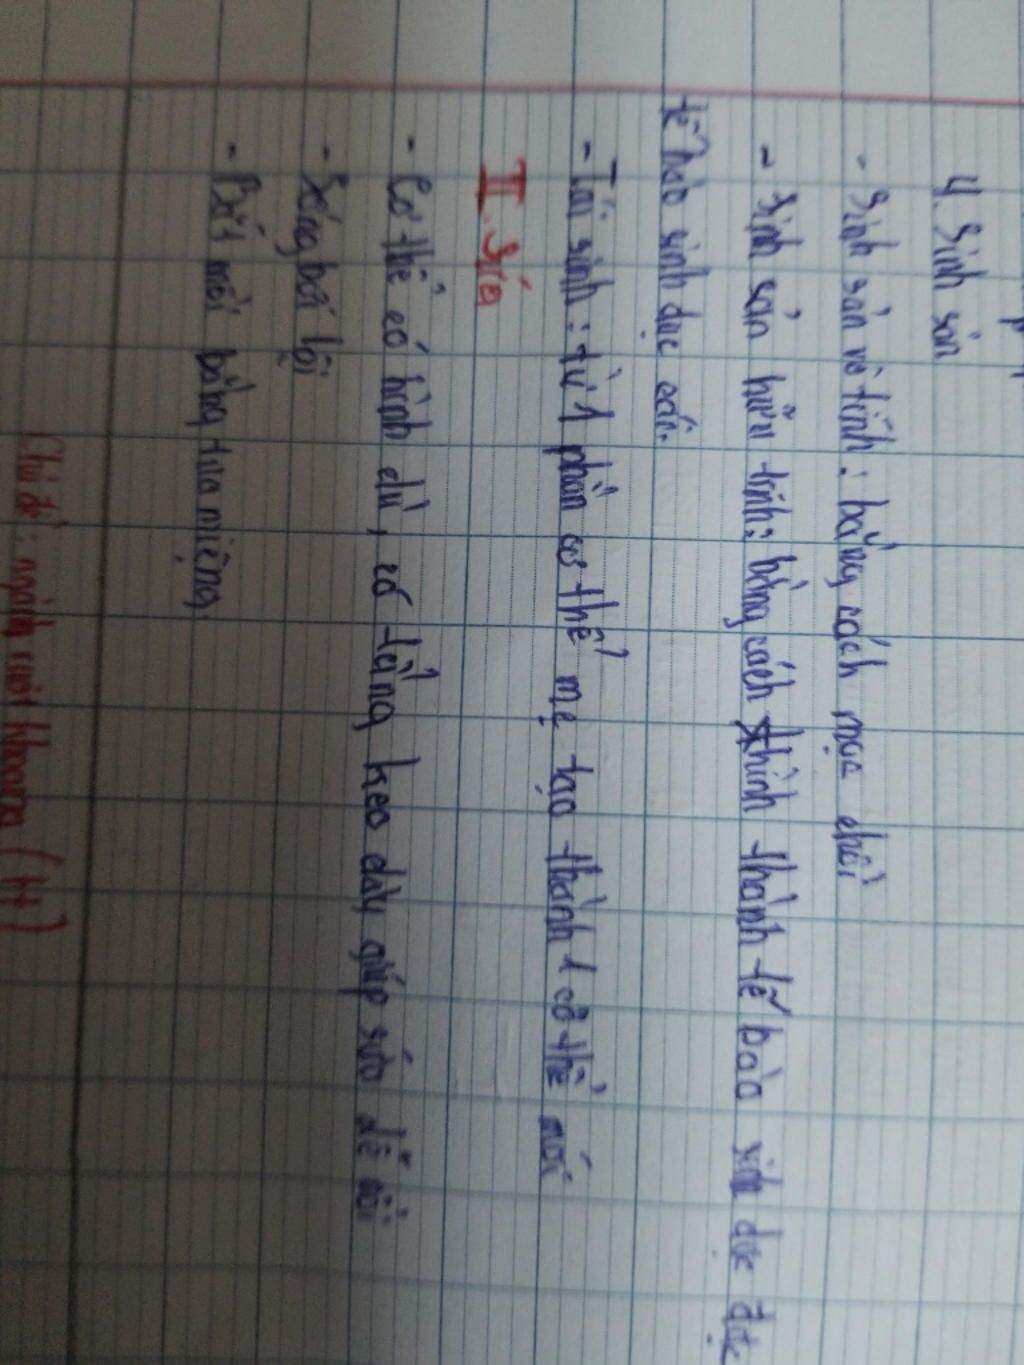 4. Sinh sản
- Sinh sản vô tính: bằng cách mọc chồi
- Sinh sản hữu tính: bằng cách hình thành tế bào sinh dục đực
tế bào sinh dục cái.
- Tái sinh: từ 1 phần cơ thể mẹ tạo thành 1 cơ thể mới
II. Sứa
- Cơ thể có hình dù, có tầng keo dày giúp sứa dễ nổi
- Sống bơi lội
- Bắt mồi bằng tua miệng.
Chủ đề: ngành ruột khoang (tt)